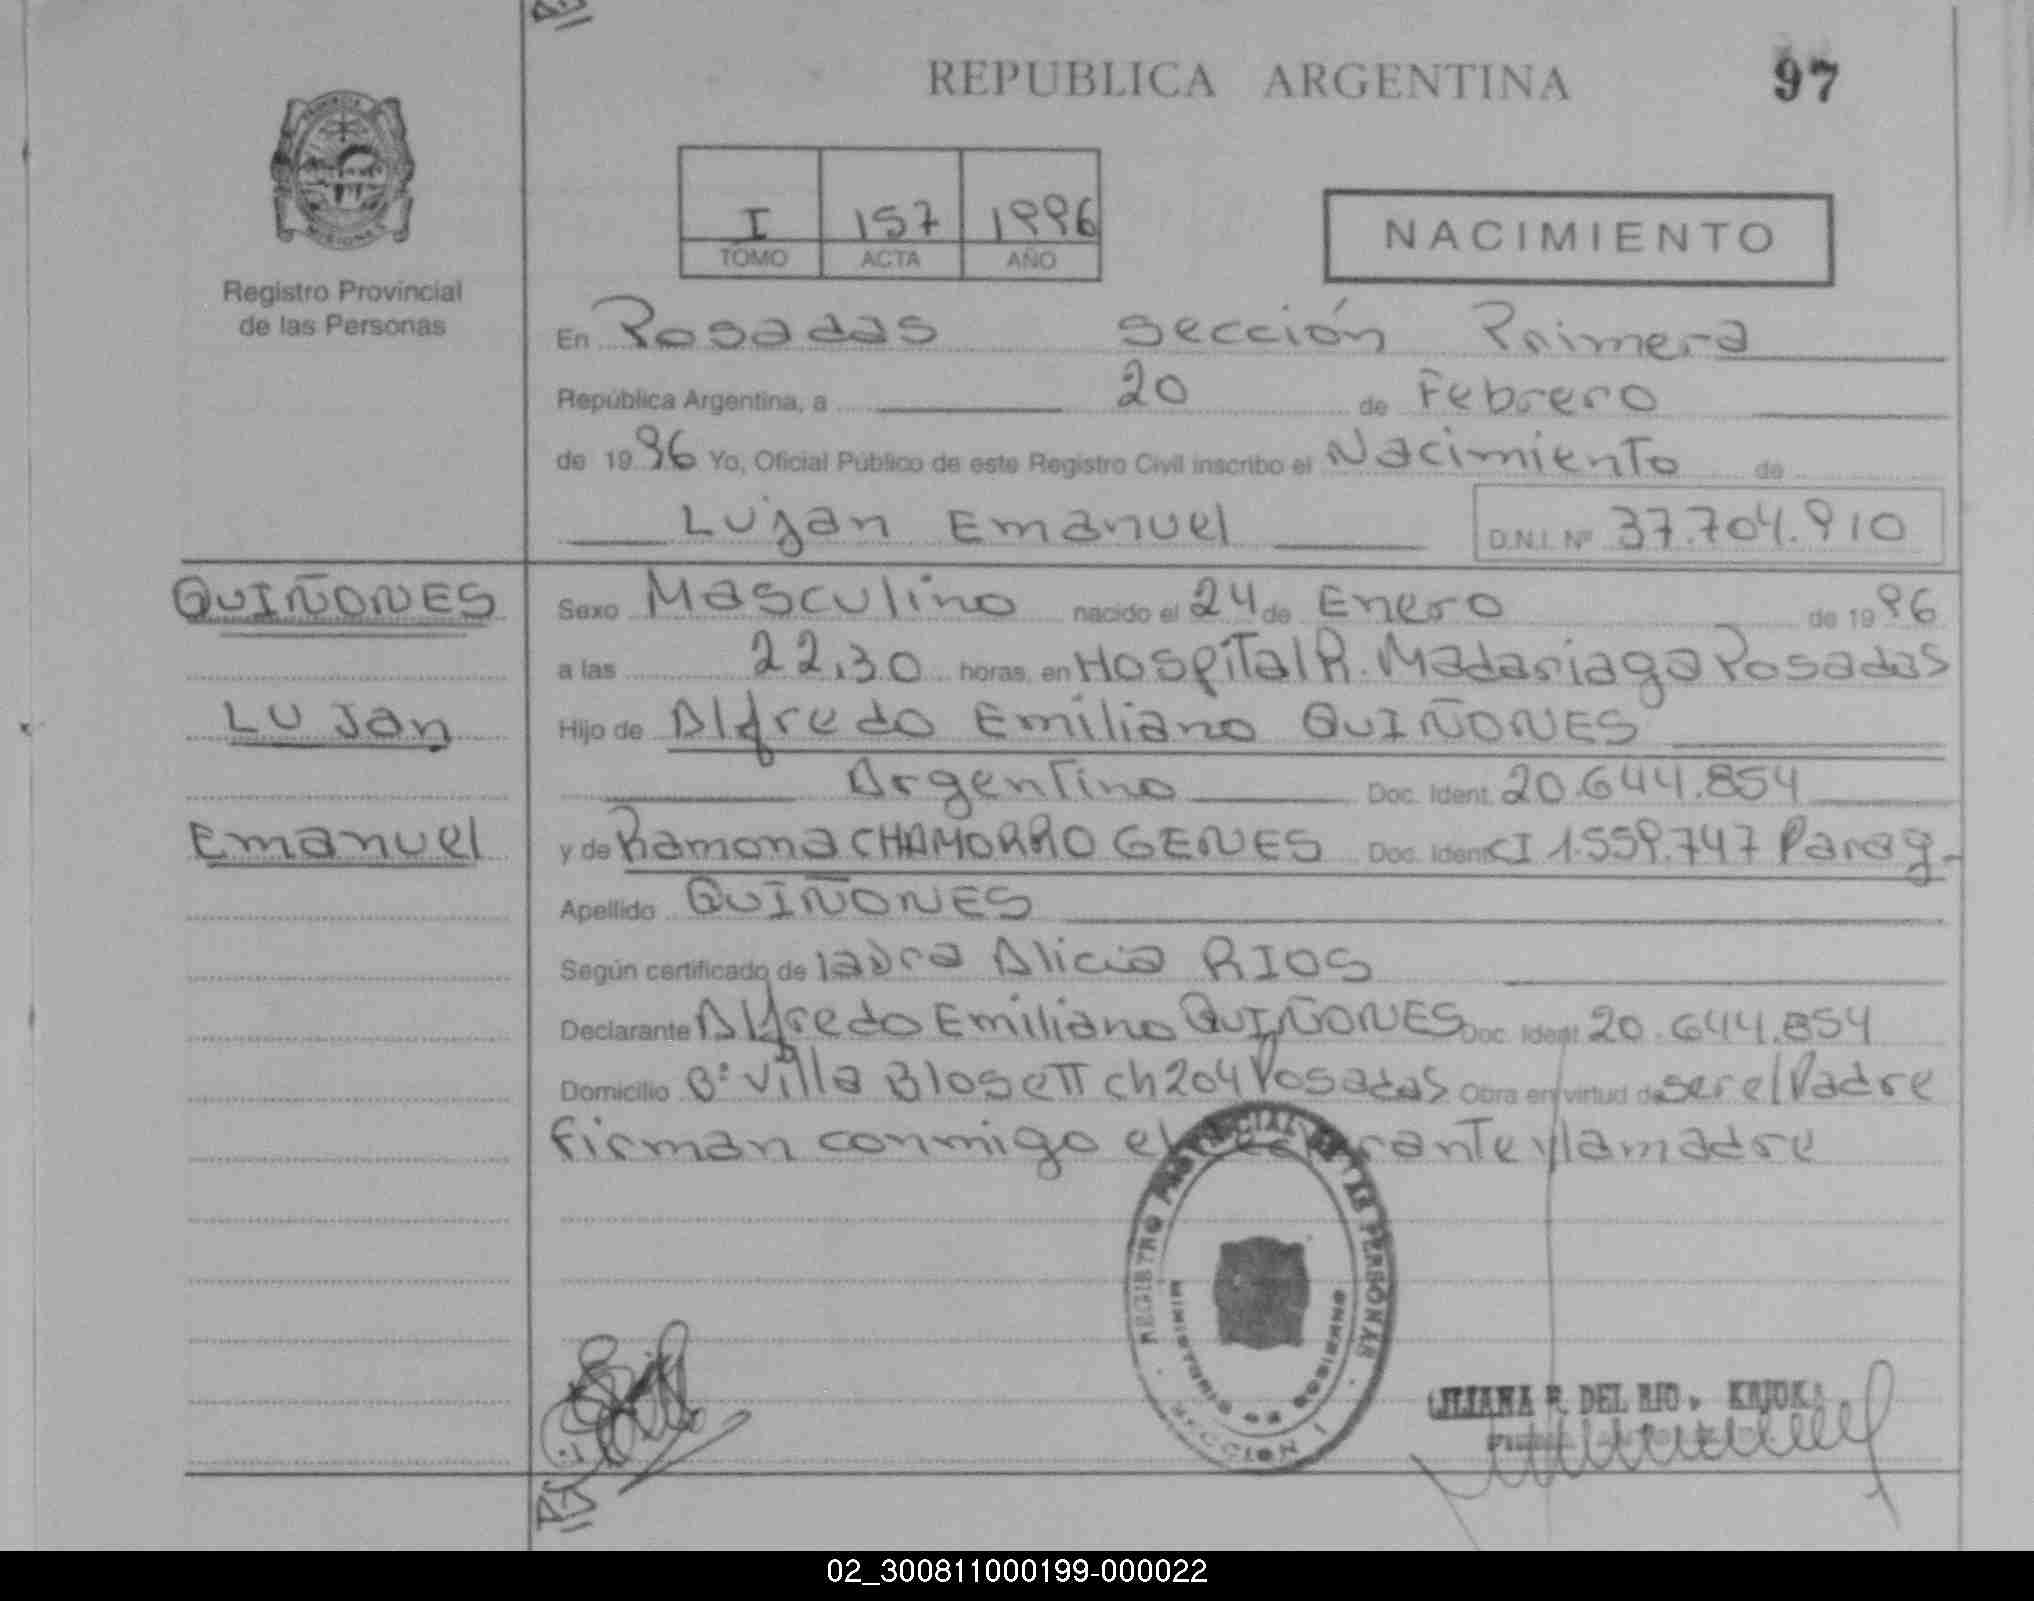 REPUBLICA ARGENTINA 97
PROVINCIA
MISIONES
Registro Provincial
de las Personas
I 157 1996
TOMO ACTA AÑO
NACIMIENTO
En Posadas sección Primera
República Argentina, a 20 de Febrero
de 1996 Yo, Oficial Público de este Registro Civil inscribo el Nacimiento de
Lujan Emanuel D.N.I. Nº 37.704.910
QUIÑONES
Lujan
Emanuel
Sexo Masculino nacido el 24 de Enero de 1996
a las 22,30 horas, en Hospital R. Madariaga Posadas
Hijo de Alfredo Emiliano QUIÑONES
Argentino Doc. Ident. 20.644.854
y de Ramona CHAMORRO GENES Doc. Ident. CI 1.559.747 Parag-
Apellido QUIÑONES
Según certificado de la Dra Alicia RIOS
Declarante Alfredo Emiliano QUIÑONES Doc. Ident. 20.644.854
Domicilio Bº Villa Blosett ch 204 Posadas Obra en virtud de ser el Padre
firman conmigo el declarante y la madre
REGISTRO PROVINCIAL DE LAS PERSONAS
MINISTERIO DE GOBIERNO
SECCION I
LILIANA R. DEL RIO
02_300811000199-000022